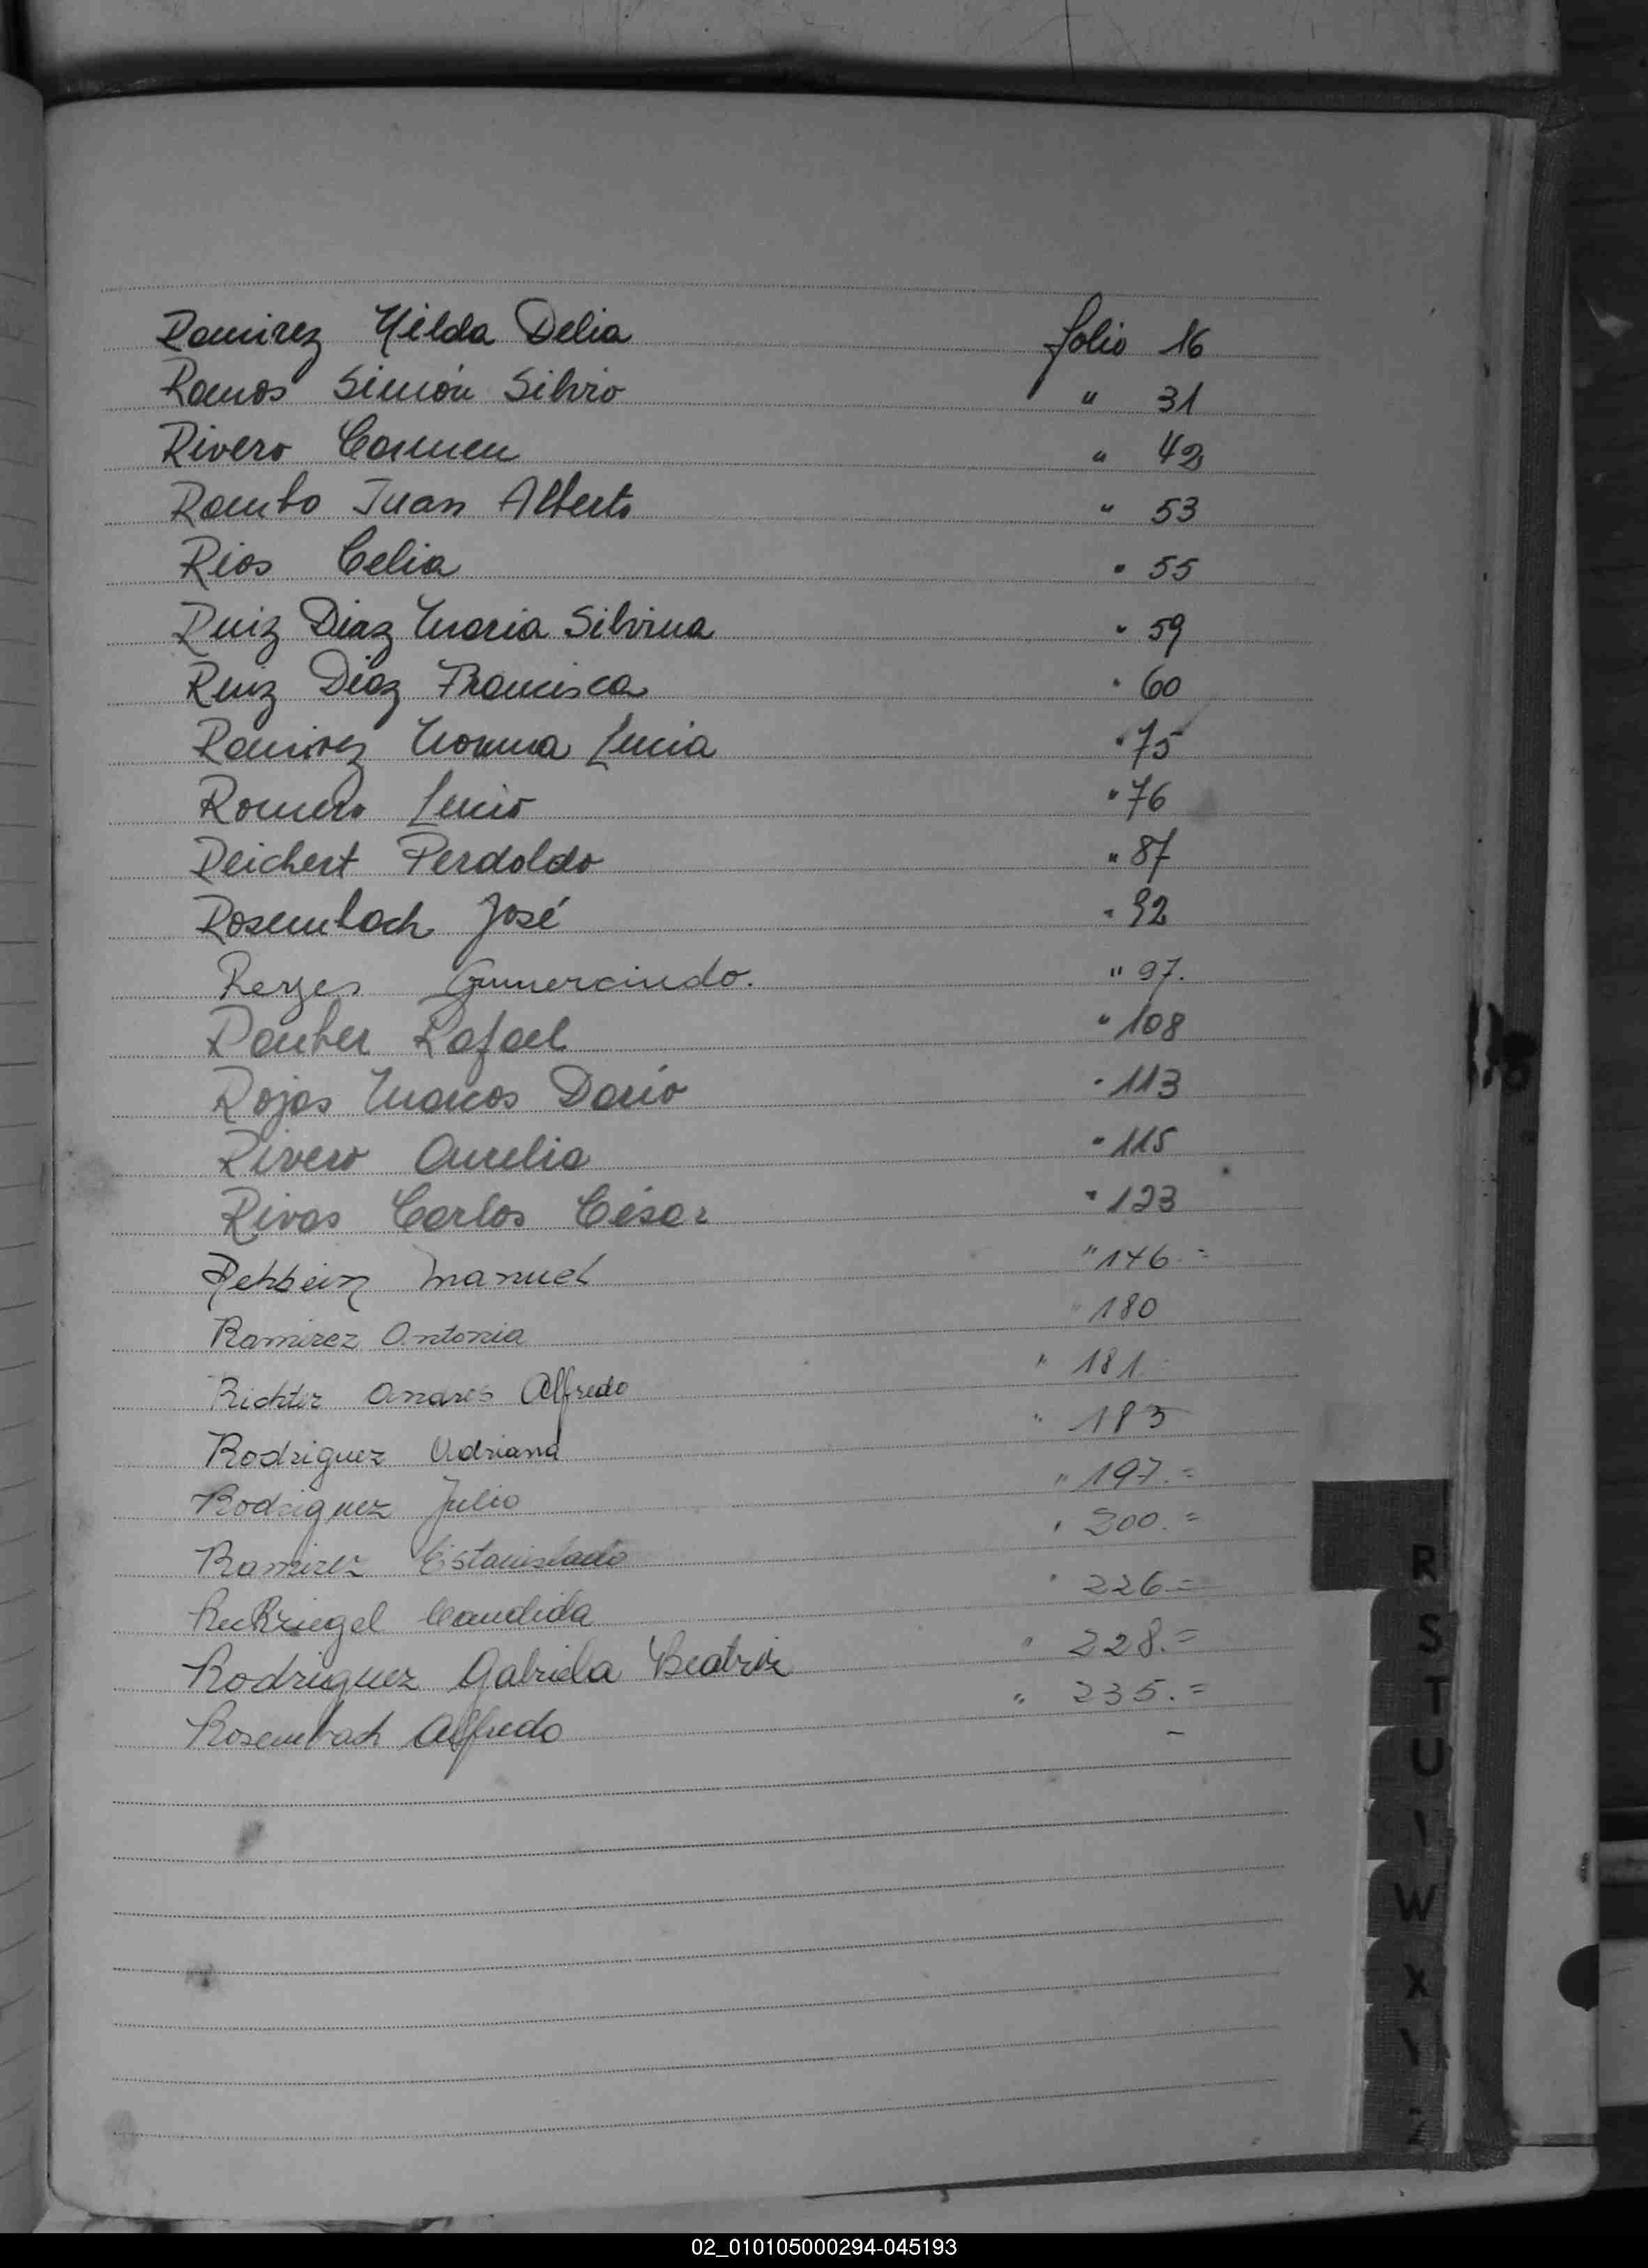 Ramirez Hilda Delia folio 16
Ramos Simón Silvio " 31
Rivero Carmen " 42
Rambo Juan Alberto " 53
Rios Celia " 55
Ruiz Diaz Maria Silvina " 59
Ruiz Diaz Francisca " 60
Ramirez Norma Lucia " 75
Romero Lucio " 76
Reichert Perdoldo " 87
Rosembach José " 92
Reyes Gumercindo. " 97.
Rauber Rafael " 108
Rojas Marcos Dario " 113
Rivero Aurelia " 115
Rivas Carlos César " 123
Rehbein Manuel " 146.=
Ramirez Antonia " 180
Richter Andres Alfredo " 181
Rodriguez Adriana " 183
Rodriguez Julio " 197.=
Ramirez Estanislado " 200.=
ReKziegel Candida " 226=
Rodriguez Gabriela Beatriz " 228.=
Rosembach Alfredo " 235.=
R
S
T
U
W
X
02_010105000294-045193